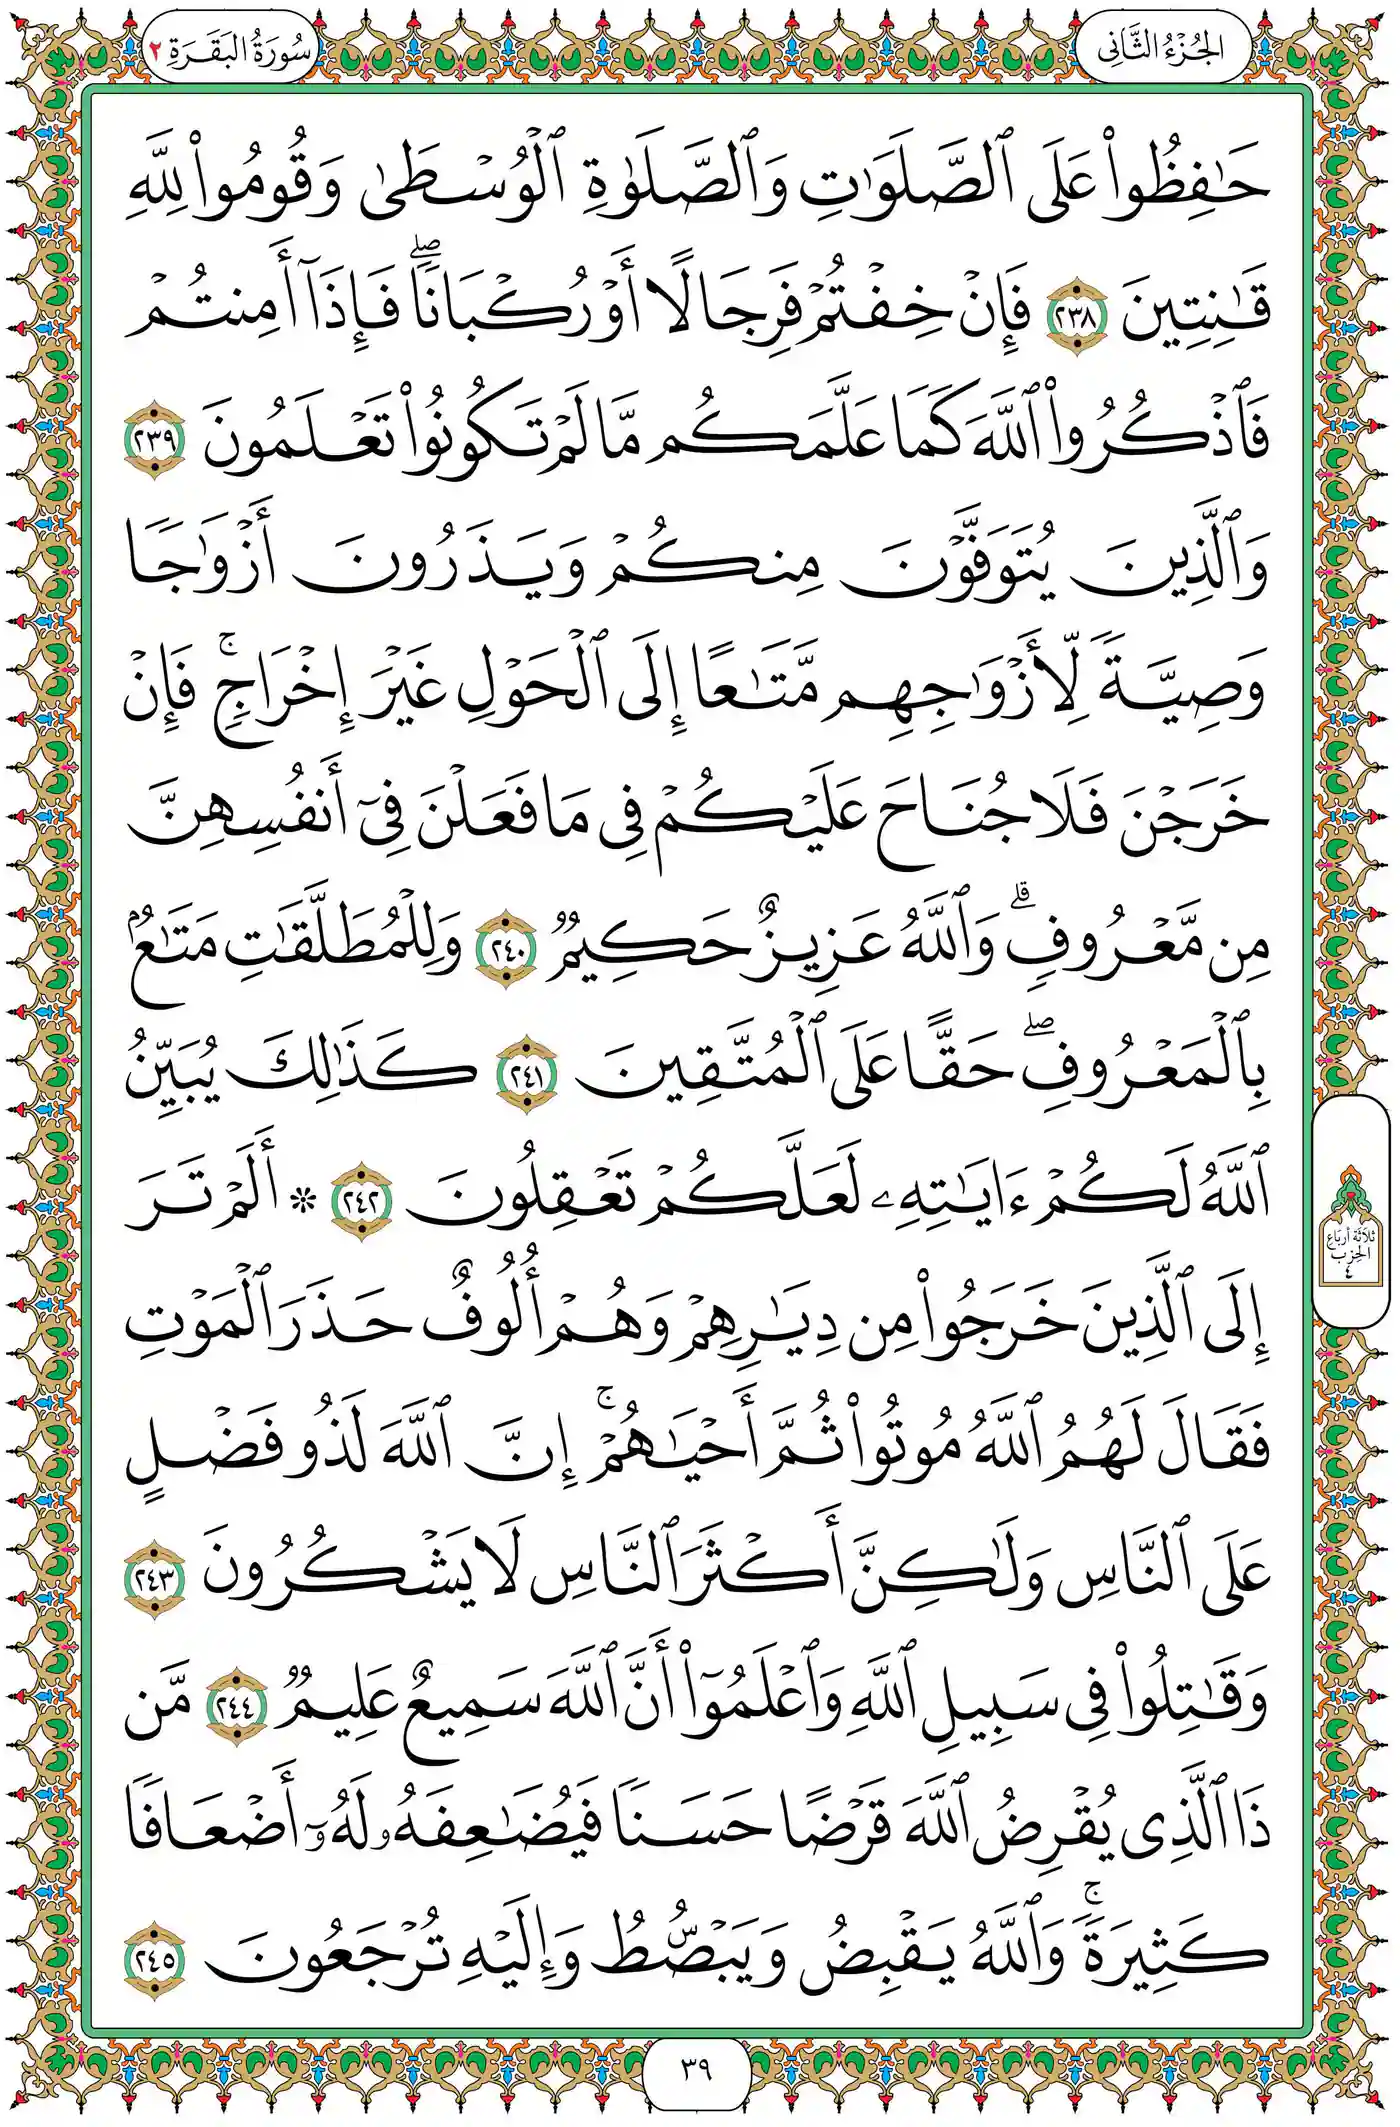 الجُزْءُ الثَّانِى
سُورَةُ البَقَرَةِ ٢
حَٰفِظُوا۟ عَلَى ٱلصَّلَوَٰتِ وَٱلصَّلَوٰةِ ٱلْوُسْطَىٰ وَقُومُوا۟ لِلَّهِ
قَٰنِتِينَ ٢٣٨ فَإِنْ خِفْتُمْ فَرِجَالًا أَوْ رُكْبَانًا ۖ فَإِذَآ أَمِنتُمْ
فَٱذْكُرُوا۟ ٱللَّهَ كَمَا عَلَّمَكُم مَّا لَمْ تَكُونُوا۟ تَعْلَمُونَ ٢٣٩
وَٱلَّذِينَ يُتَوَفَّوْنَ مِنكُمْ وَيَذَرُونَ أَزْوَٰجًا
وَصِيَّةً لِّأَزْوَٰجِهِم مَّتَٰعًا إِلَى ٱلْحَوْلِ غَيْرَ إِخْرَاجٍ ۚ فَإِنْ
خَرَجْنَ فَلَا جُنَاحَ عَلَيْكُمْ فِى مَا فَعَلْنَ فِىٓ أَنفُسِهِنَّ
مِن مَّعْرُوفٍ ۗ وَٱللَّهُ عَزِيزٌ حَكِيمٌ ٢٤٠ وَلِلْمُطَلَّقَٰتِ مَتَٰعٌۢ
بِٱلْمَعْرُوفِ ۖ حَقًّا عَلَى ٱلْمُتَّقِينَ ٢٤١ كَذَٰلِكَ يُبَيِّنُ
ٱللَّهُ لَكُمْ ءَايَٰتِهِۦ لَعَلَّكُمْ تَعْقِلُونَ ٢٤٢ * أَلَمْ تَرَ
إِلَى ٱلَّذِينَ خَرَجُوا۟ مِن دِيَٰرِهِمْ وَهُمْ أُلُوفٌ حَذَرَ ٱلْمَوْتِ
فَقَالَ لَهُمُ ٱللَّهُ مُوتُوا۟ ثُمَّ أَحْيَٰهُمْ ۚ إِنَّ ٱللَّهَ لَذُو فَضْلٍ
عَلَى ٱلنَّاسِ وَلَٰكِنَّ أَكْثَرَ ٱلنَّاسِ لَا يَشْكُرُونَ ٢٤٣
وَقَٰتِلُوا۟ فِى سَبِيلِ ٱللَّهِ وَٱعْلَمُوٓا۟ أَنَّ ٱللَّهَ سَمِيعٌ عَلِيمٌ ٢٤٤ مَّن
ذَا ٱلَّذِى يُقْرِضُ ٱللَّهَ قَرْضًا حَسَنًا فَيُضَٰعِفَهُۥ لَهُۥٓ أَضْعَافًا
كَثِيرَةً ۚ وَٱللَّهُ يَقْبِضُ وَيَبْصُۜطُ وَإِلَيْهِ تُرْجَعُونَ ٢٤٥
ثلاثة أرباع
الحزب
٤
٣٩